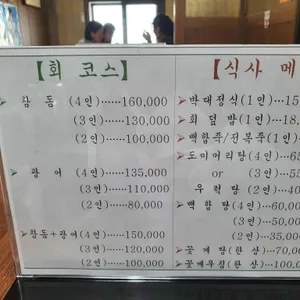 【회 코스】
➢참 돔 (4인)......160,000
(3인)......130,000
(2인)......100,000
➢광 어 (4인)......135,000
(3인)......110,000
(2인)......80,000
참돔+광어(4인)......150,000
(3인)......120,000
(2인)......100,000
【식사 메
➢박대정식(1인)...15
➢회 덮 밥(1인)...18,
➢백합죽/전복죽(1인)
➢도미머리탕(4인)...65
or (3인)...55
우 럭 탕 (2인)...40
➢백 합 탕 (4인)...60,00
(3인)...50,00
(2인)...35,00
➢꽃 게 탕(한 상)...70,0
➢꽃게무침(한 상)...100,0